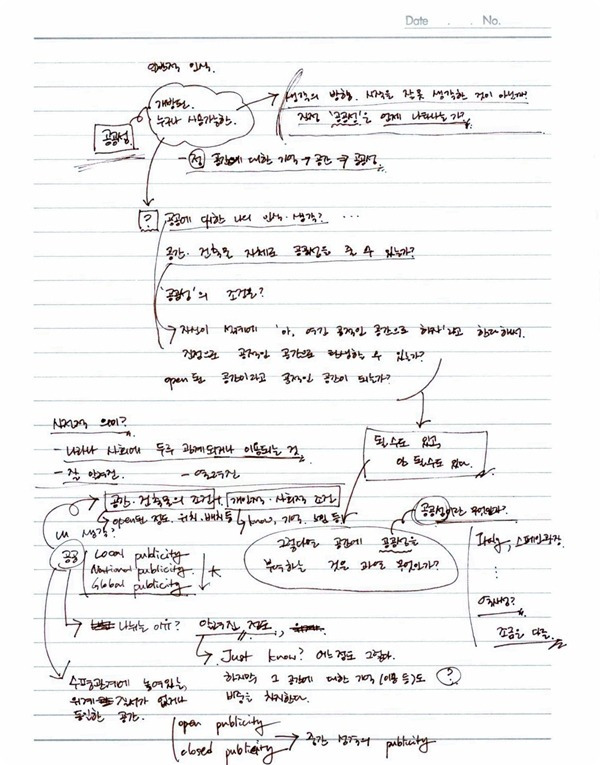 Date . . No.
일반적 인식.
개방된.
누구나 사용가능한.
공공성
생각의 방향. 시작을 잘못 생각한 것이 아닌가?
진정 '공공성'을 언제 나타나는가?
공간에 대한 기억 → 공간 공공성.
?
공공에 대한 나의 인식·생각? ...
공간·건축물 자체로 공공성을 줄 수 있는가?
'공공성'의 조건은?
'아, 여긴 공적인 공간으로 하자'라고 한다해서.
진정으로 공적인 공간으로 탄생할 수 있는가?
open된 공간이라고 공적인 공간이 되는가?
사전적 의미?
- 나라나 사회에 두루 관계되거나 이용되는 것
- 잘 알려진 - 열려진
될 수도 있고,
안 될 수도 있다.
공간·건축물의 조건 + 개인적·사회적 조건
open된 정도, 위치, 배치 등
know, 기억, 등
내 생각?
공공
Local publicity
National publicity
Global publicity
공공성이란 무엇인가?
그렇다면 공간에 공공성을
부여하는 것은 과연 무엇인가?
Italy, 스페인 광장
조금은 다른
나뉘는 이유? 알려진 정도,
Just know? 어느정도 그렇다.
하지만 그 공간에 대한 기억 (이용 등)도 ?
비중을 차지한다.
수평관계에 놓여있는,
위계 질서가 없거나
동일한 공간.
open publicity
closed publicity → 중간 성격의 publicity